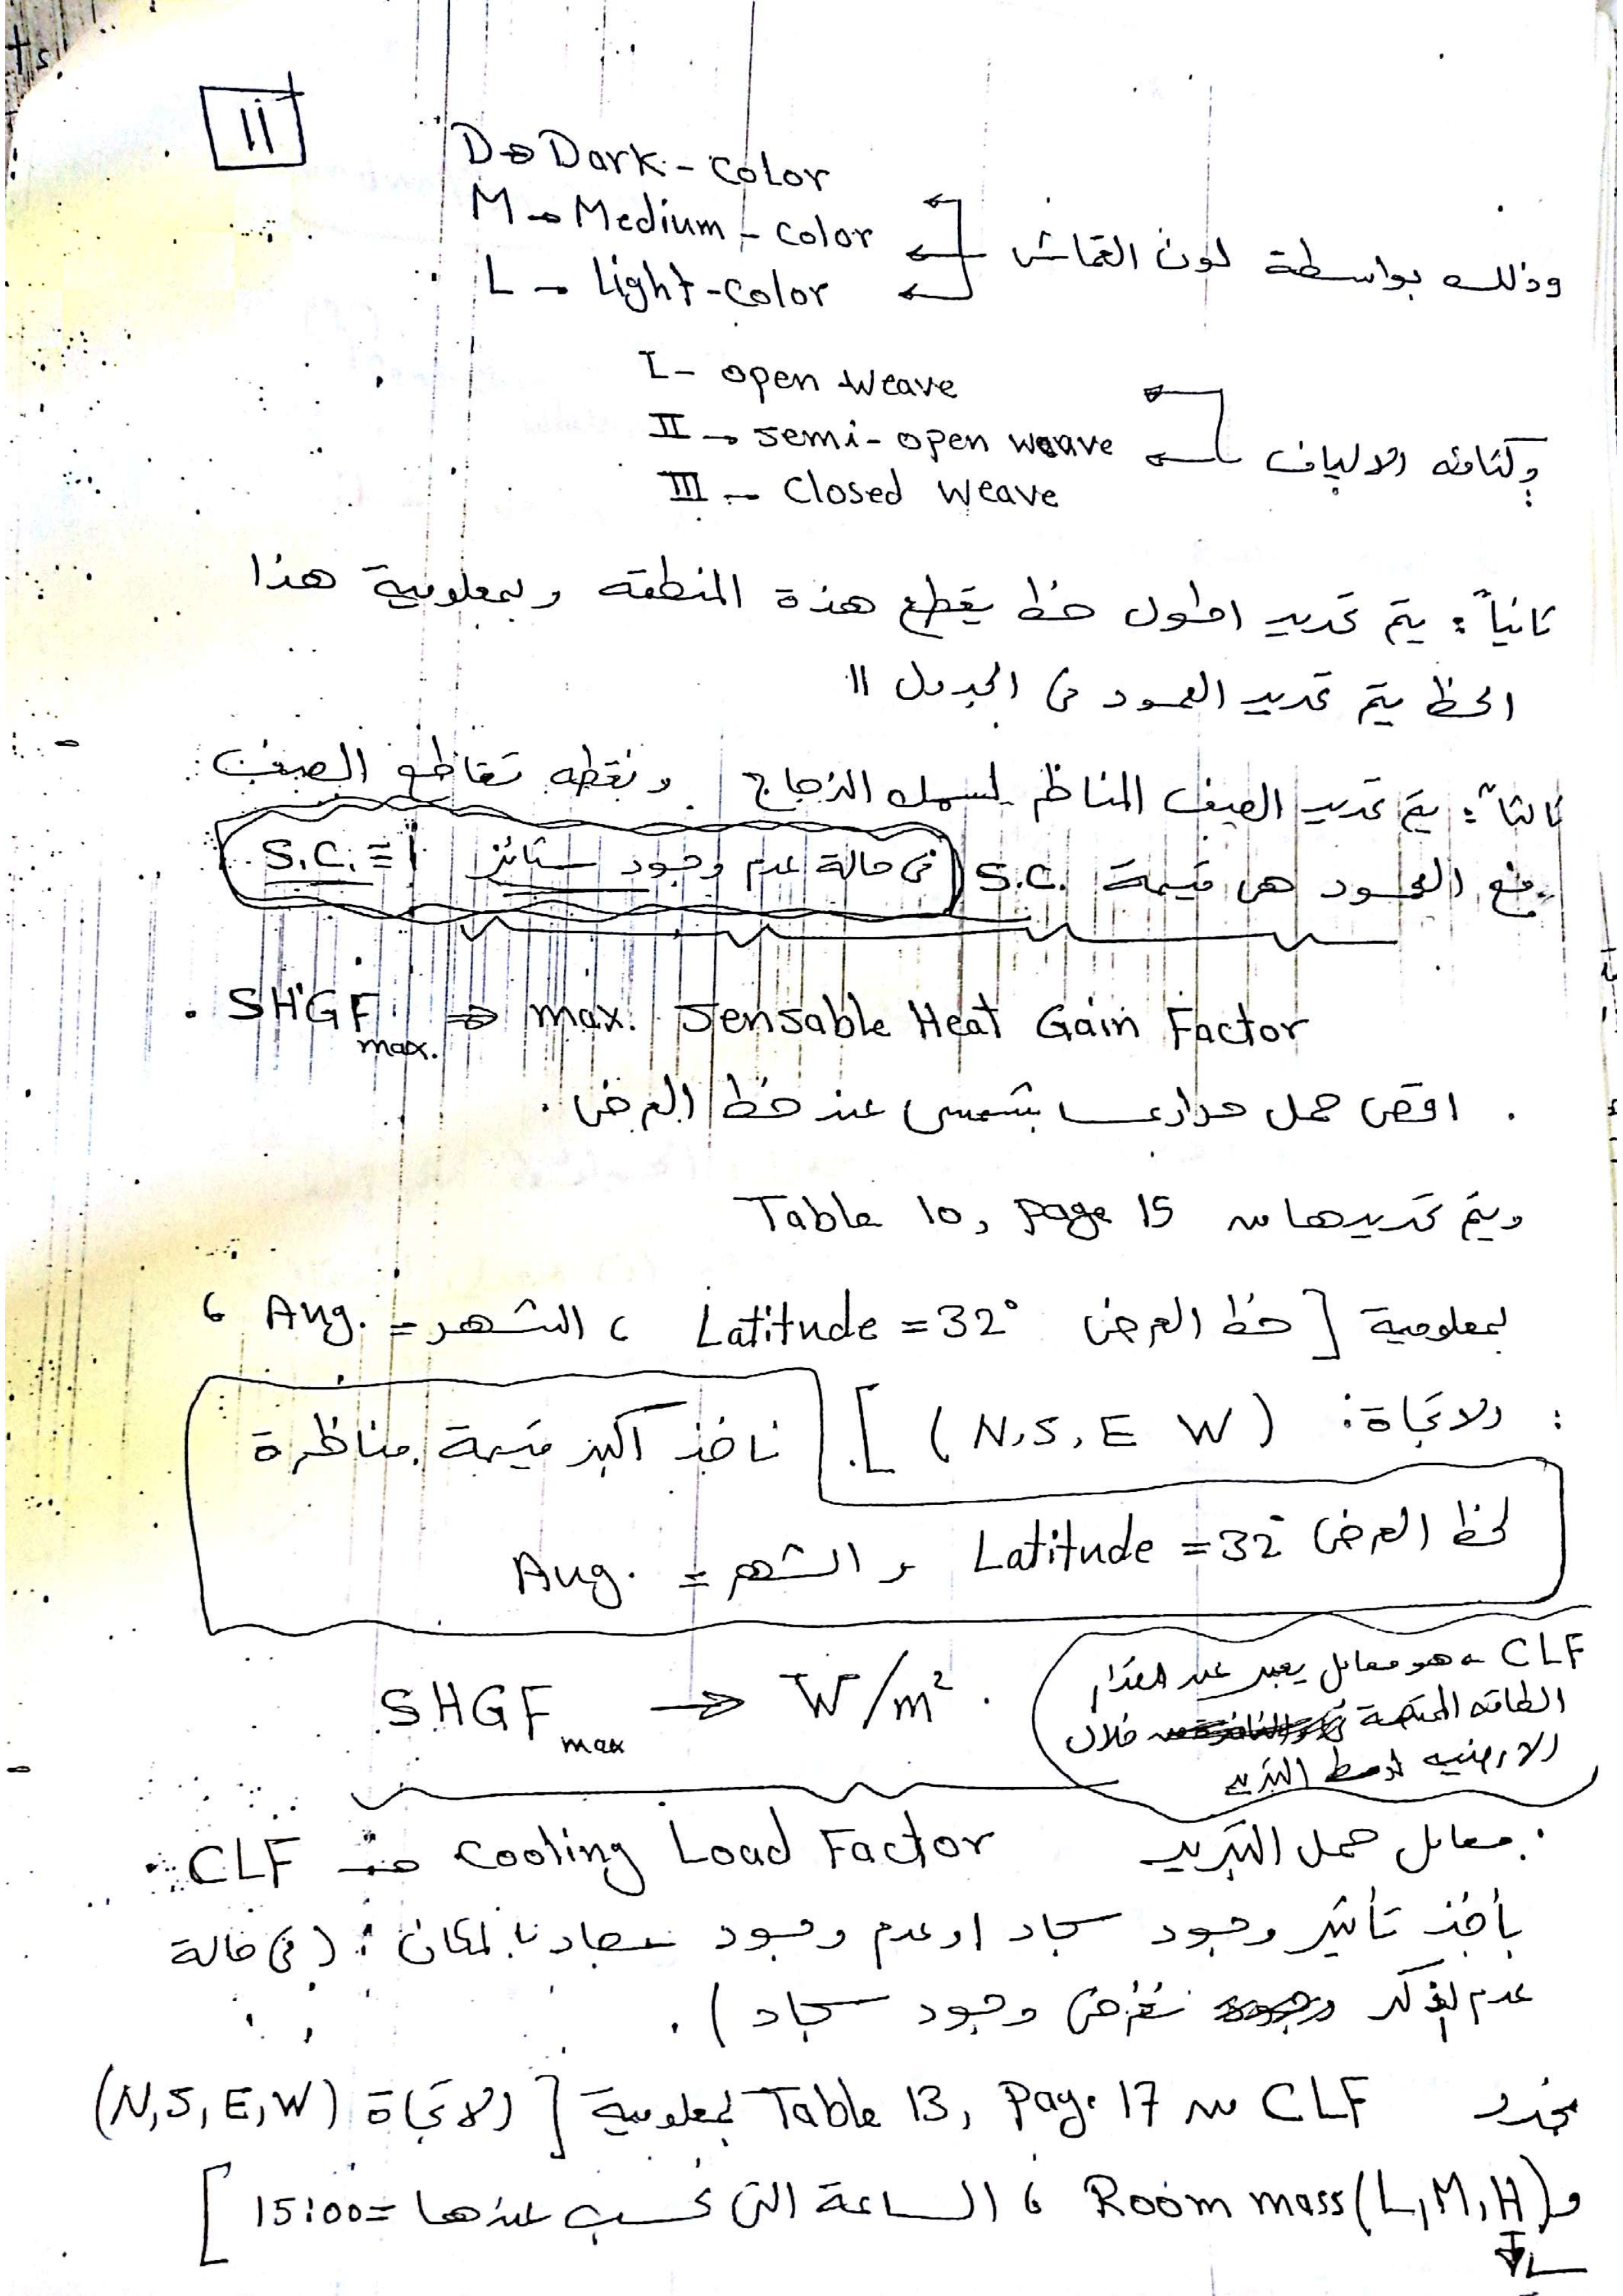 11
D → Dark - color
M → Medium - color
L → Light - color
وذلك بواسطة لون القماش
I - open weave
II → semi - open weave
III → Closed weave
وكثافة الالياف
ثانياً : يتم تحديد اطول خط يقطع هذة المنطقة وبمعلومية هذا
الخط يتم تحديد العمود فى الجدول 11
ثالثاً : يتم تحديد الصف المناظر لسمك الزجاج . ونقطه تقاطع الصف
مع العمود هى قيمة S.C. (فى حالة عدم وجود ستائر S.C. = 1
. SHGF max. ⇒ max. Sensable Heat Gain Factor
. اقصى حمل حرارى شمسى عند خط العرض .
ويتم تحديدها من Table 10, page 15
بمعلومية [ خط العرض Latitude = 32° ، الشهر = Aug. ،
والاتجاة : (N,S,E W) ]. ناخذ اكبر قيمة مناظرة
لخط العرض Latitude = 32° و الشهر = Aug.
SHGF max → W/m² .
CLF → هو معامل يعبر عن مقدار
الطاقه الممتصة خلال
الارضيه
. CLF ⇒ Cooling Load Factor معامل حمل التبريد .
يأخذ تأثير وجود سجاد او عدم وجود سجاد بالمكان : (فى حالة
عدم الذكر نفرض وجود سجاد ) .
نحدد CLF من Table 13, Page 17 بمعلومية [ الاتجاة (N,S,E,W)
و Room mass (L,M,H) ، الساعة التى نحسب عندها = 15:00 ]
L